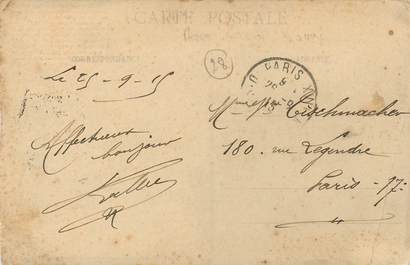 CARTE POSTALE
CORRESPONDANCE
28
PARIS
Le 25-9-15
Affectueux
bonjour
Tischmacher
180. rue Legendre
Paris - 17 -